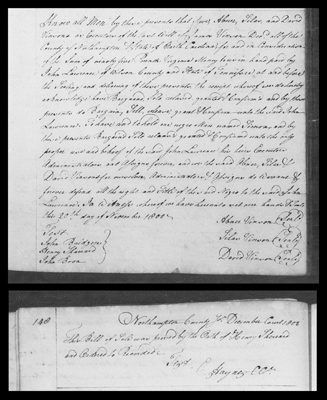 Know all Men by these presents that Jones, Abner, Silas, and David
Vinson as Executors of the last Will of Hannah Vinson Decd. all of the
County of Northampton State of North Carolina for and in Consideration
of the Sum of ninety five Pounds Virginia Money to us in hand paid by
John Lawrence of Wilson County and State of Tennessee at and before
the Sealing and delivery of these presents the receipt whereof we do hereby
acknowledge have Bargained Sold released granted & Confirmed and by these
presents do Bargain, Sell, release, grant & Confirm unto the said John
Lawrence To have and to hold one negro Man named by these
presents Bargained Sold released granted & Confirmed unto the only
proper use and behoof of the said John Lawrence his heirs Executors
Administrators and Assigns forever, and we the said Abner, Silas &
David Vinson for executors, Administrators & Assigns do Warrant &
forever defend all the right and Title of the said Negro to the said John
Lawrence. In Witness whereof we have hereunto set our hands & Seals
this 20th day of November 1800
Test
Abner Vinson (Seal)
John Bridgers
Silas Vinson (Seal)
Henry
John Boon
David Vinson (Seal)
148
Northampton County December Court 1802
This Bill of Sale was proved by the Oath of Henry
and Ordered to be recorded.
Test
Haynes CC